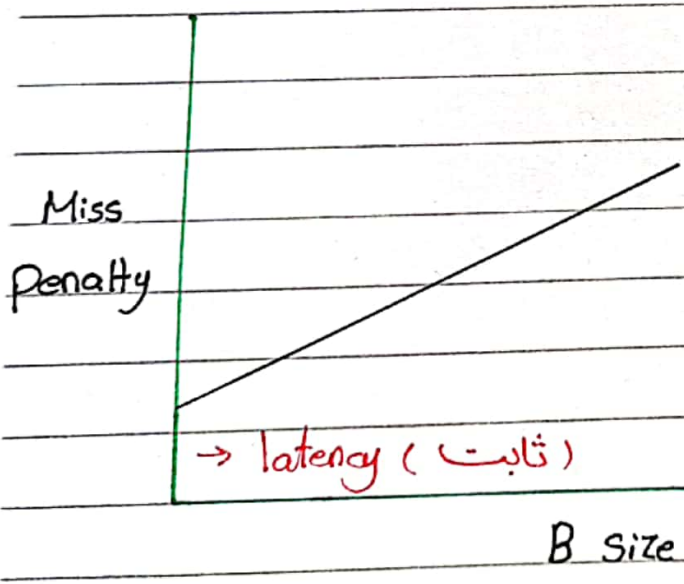 Miss
Penalty
→ latency ( ثابت )
B size